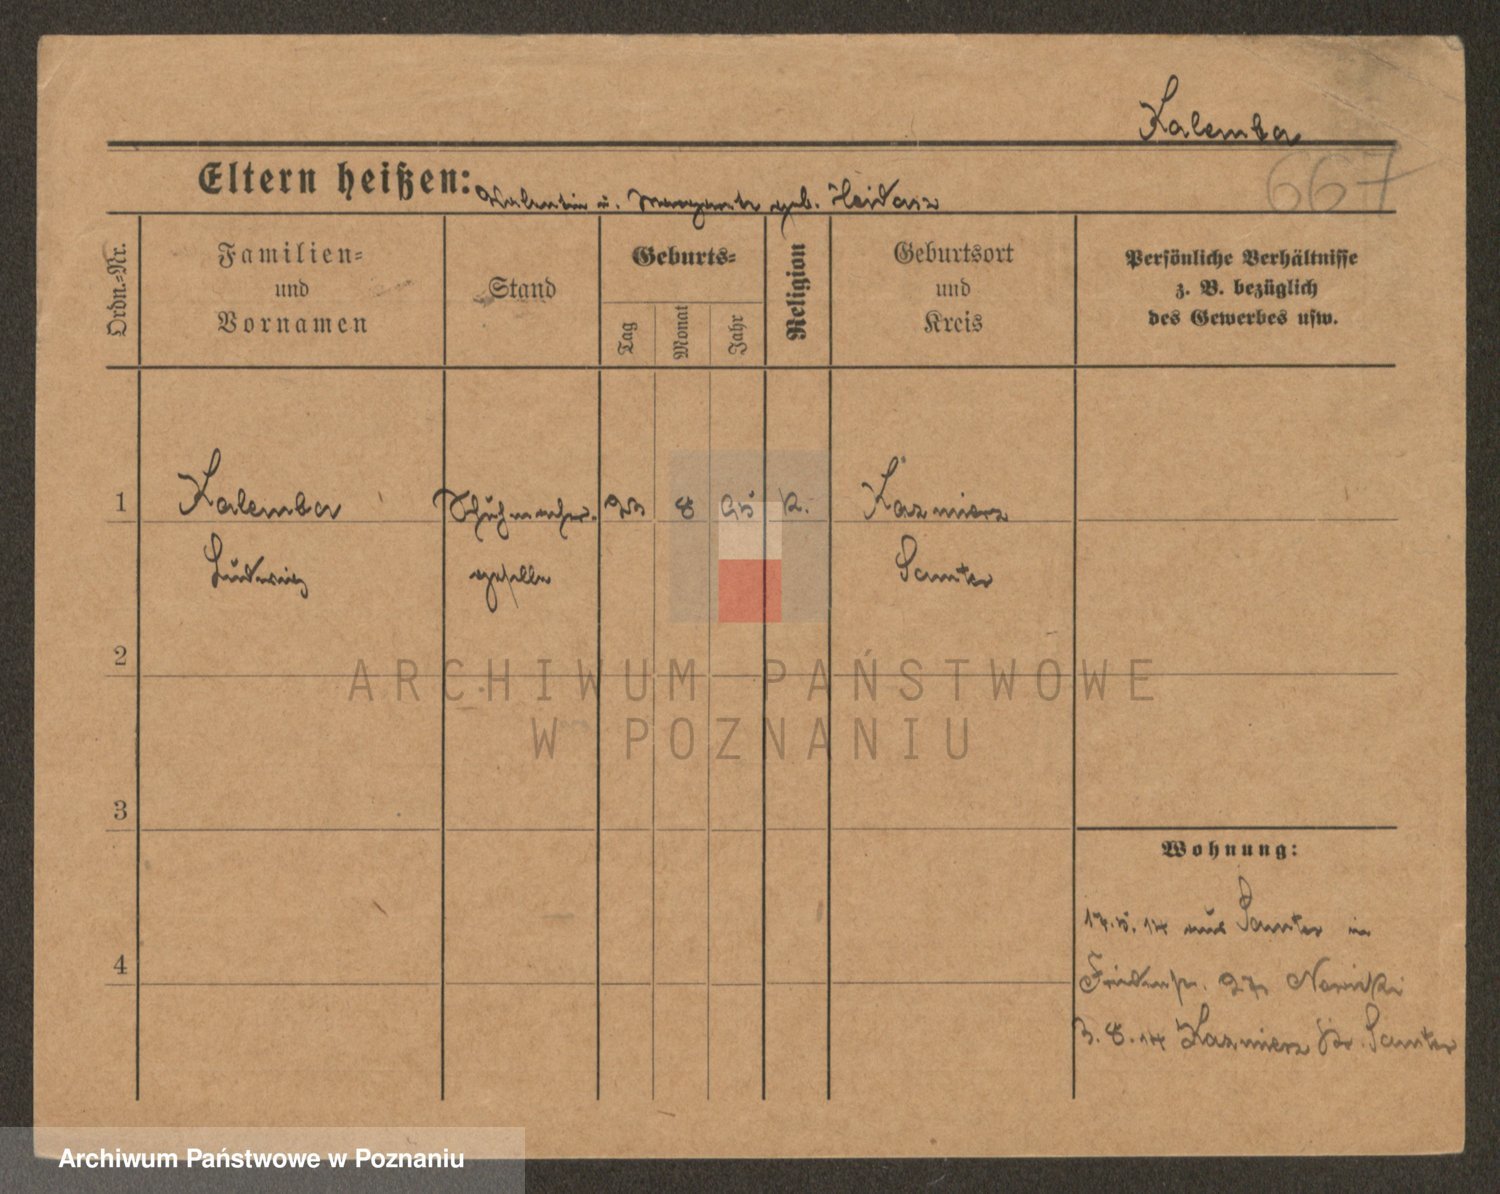 Kalemba
667
Eltern heißen: Valentin u. Margarete geb.
Ordn.-Nr.
Familien-
und
Vornamen
Stand
Geburts-
Tag
Monat
Jahr
Religion
Geburtsort
und
Kreis
Persönliche Verhältnisse
z. B. bezüglich
des Gewerbes usw.
1 Kalemba Schuhmacher. 8 95 k. Kazmierz
Ludwig geselle Samter
2
3
4
Wohnung:
17.5.14 aus Samter in
27 Nowicki
3.8.14 Kazmierz Kr. Samter
ARCHIWUM PAŃSTWOWE
W POZNANIU
Archiwum Państwowe w Poznaniu